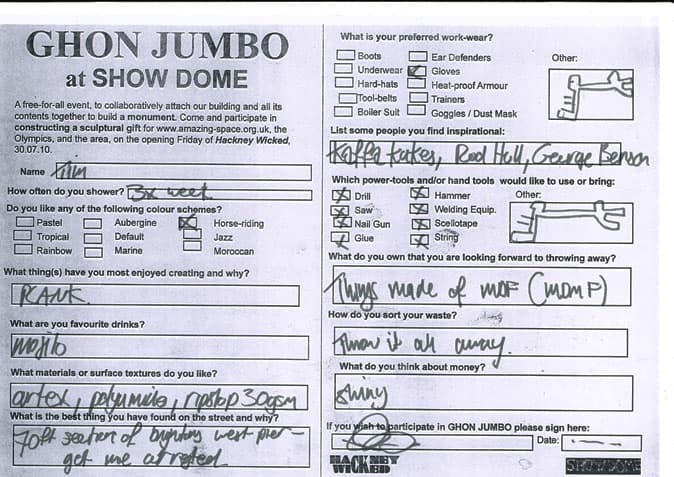 GHON JUMBO
at SHOW DOME
A free-for-all event, to collaboratively attach our building and all its
contents together to build a monument. Come and participate in
constructing a sculptural gift for www.amazing-space.org.uk, the
Olympics, and the area, on the opening Friday of Hackney Wicked,
30.07.10.
Name Tim
How often do you shower? 3x week
Do you like any of the following colour schemes?
Pastel Aubergine Horse-riding
Tropical Default Jazz
Rainbow Marine Moroccan
What thing(s) have you most enjoyed creating and why?
RANK.
What are you favourite drinks?
mojito
What materials or surface textures do you like?
artex, polyamide, ripstop 30gsm
What is the best thing you have found on the street and why?
70ft section of brighton west pier -
got me arrested
What is your preferred work-wear?
Boots Ear Defenders Other:
Underwear Gloves
Hard-hats Heat-proof Armour
Tool-belts Trainers
Boiler Suit Goggles / Dust Mask
List some people you find inspirational:
Kaffe, Rod Hull, George Benson
Which power-tools and/or hand tools would like to use or bring:
Drill Hammer Other:
Saw Welding Equip.
Nail Gun Scellotape
Glue String
What do you own that you are looking forward to throwing away?
Things made of MDF (MDMF)
How do you sort your waste?
throw it all away.
What do you think about money?
shiny
If you wish to participate in GHON JUMBO please sign here:
Date:
HACKNEY
WICKED
SHOWDOME